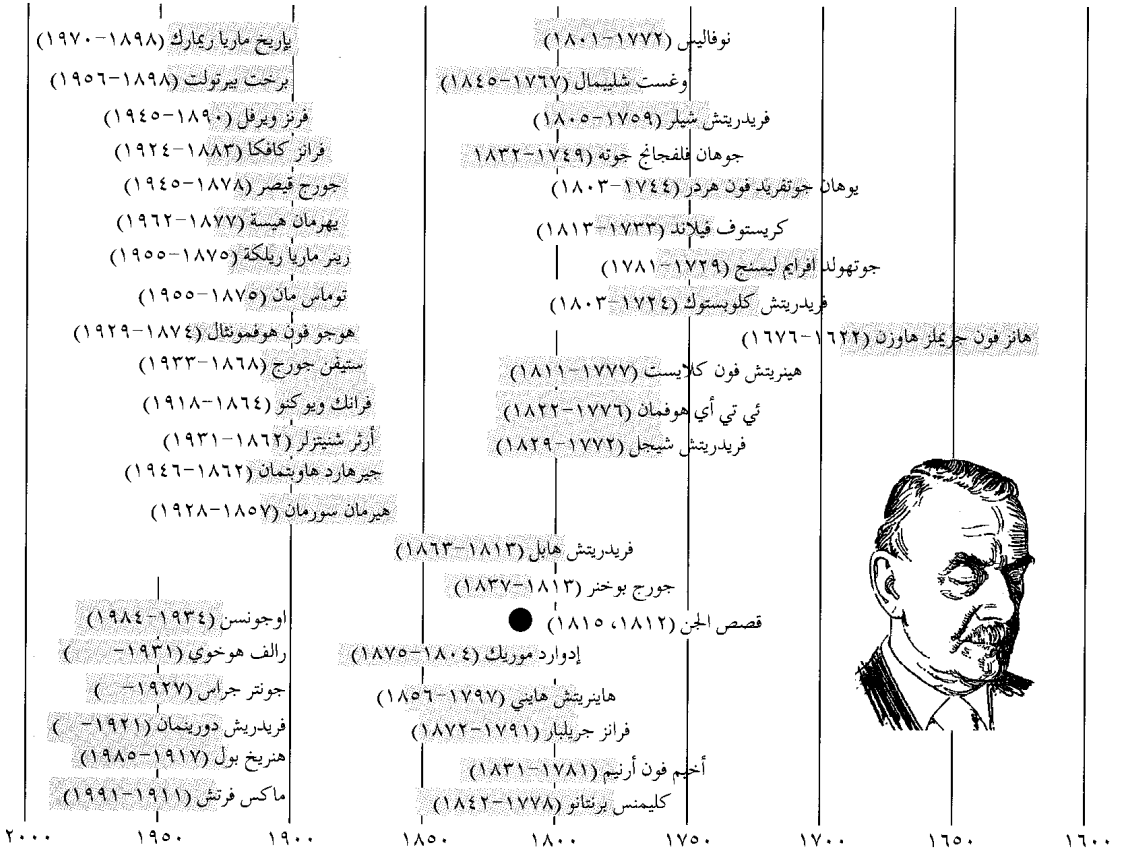 نوفاليس (١٧٧٢-١٨٠١)
أوغست شليبمال (١٧٦٧-١٨٤٥)
فريدريتش شيلر (١٧٥٩-١٨٠٥)
جوهان فلفجانج جوته (١٧٤٩-١٨٣٢
يوهان جوتفريد فون هردر (١٧٤٤-١٨٠٣)
كريستوف فيلاند (١٧٣٣-١٨١٣)
جوتهولد افرايم ليسنج (١٧٢٩-١٧٨١)
فريدريتش كلوبستوك (١٧٢٤-١٨٠٣)
هانز فون جريملز هاوزن (١٦٢٢-١٦٧٦)
هينريتش فون كلايست (١٧٧٧-١٨١١)
ئي تي أي هوفمان (١٧٧٦-١٨٢٢)
فريدريتش شيجل (١٧٧٢-١٨٢٩)
فريدريتش هابل (١٨١٣-١٨٦٣)
جورج بوخنر (١٨١٣-١٨٣٧)
قصص الجن (١٨١٢، ١٨١٥)
إدوارد موريك (١٨٠٤-١٨٧٥)
هاينريتش هايني (١٧٩٧-١٨٥٦)
فرانز جريلبار (١٧٩١-١٨٧٢)
أخيم فون أرنيم (١٧٨١-١٨٣١)
كليمنس برنتانو (١٧٧٨-١٨٤٢)
يإريخ ماريا ريمارك (١٨٩٨-١٩٧٠)
برخت بيرتولت (١٨٩٨-١٩٥٦)
فرنز ويرفل (١٨٩٠-١٩٤٥)
فرانز كافكا (١٨٨٣-١٩٢٤)
جورج قيصر (١٨٧٨-١٩٤٥)
يهرمان هيسة (١٨٧٧-١٩٦٢)
رينر ماريا ريلكة (١٨٧٥-١٩٥٥)
توماس مان (١٨٧٥-١٩٥٥)
هوجو فون هوفمونثال (١٨٧٤-١٩٢٩)
ستيفن جورج (١٨٦٨-١٩٣٣)
فرانك ويوكنو (١٨٦٤-١٩١٨)
أرثر شنيتزلر (١٨٦٢-١٩٣١)
جيرهارد هاوبتمان (١٨٦٢-١٩٤٦)
هيرمان سورمان (١٨٥٧-١٩٢٨)
اوجونسن (١٩٣٤-١٩٨٤)
رالف هوخوي (١٩٣١- )
جونتر جراس (١٩٢٧- )
فريدريش دورينمان (١٩٢١- )
هنريخ بول (١٩١٧-١٩٨٥)
ماكس فرتش (١٩١١-١٩٩١)
١٦٠٠ ١٦٥٠ ١٧٠٠ ١٧٥٠ ١٨٠٠ ١٨٥٠ ١٩٠٠ ١٩٥٠ ٢٠٠٠